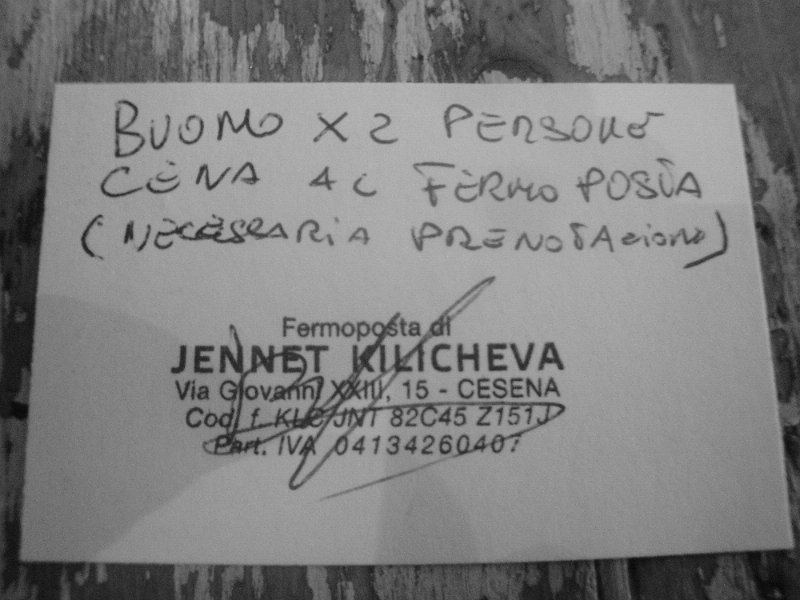 BUONO X 2 PERSONE
CENA AL FERMO POSTA
(NECESSARIA PRENOTAZIONE)
Fermoposta di
JENNET KILICHEVA
Via Giovanni XXIII, 15 - CESENA
Cod. f. KLC JNT 82C45 Z151J
Part. IVA 04134260407